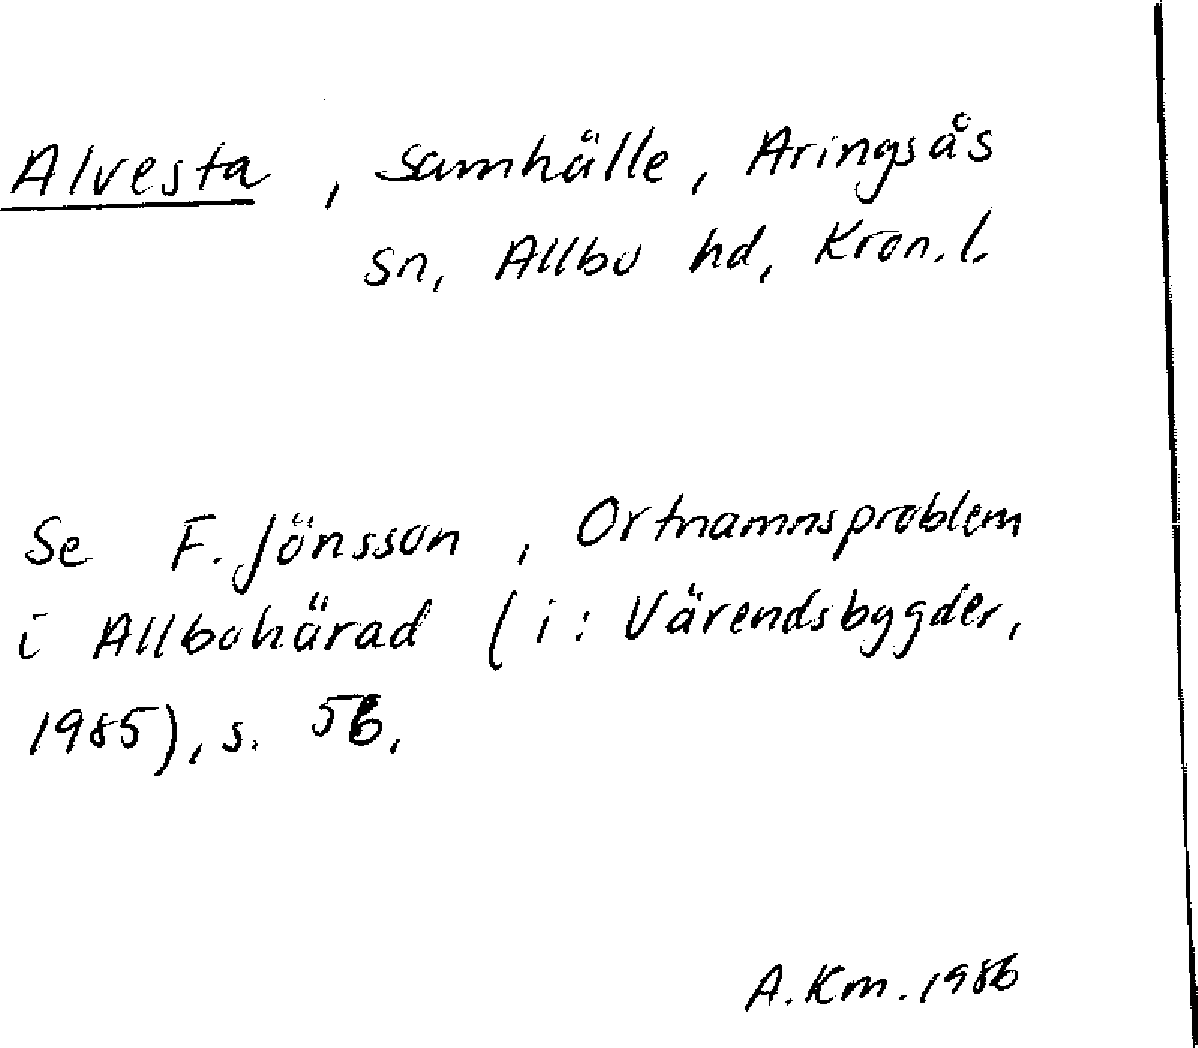 Alvesta, samhälle, Aringsås
sn, Allbo hd, Kron. l.
Se F. Jönsson, Ortnamnsproblem
i Allbohärad (i: Värendsbygder,
1985), s. 56.
A. Km. 1986